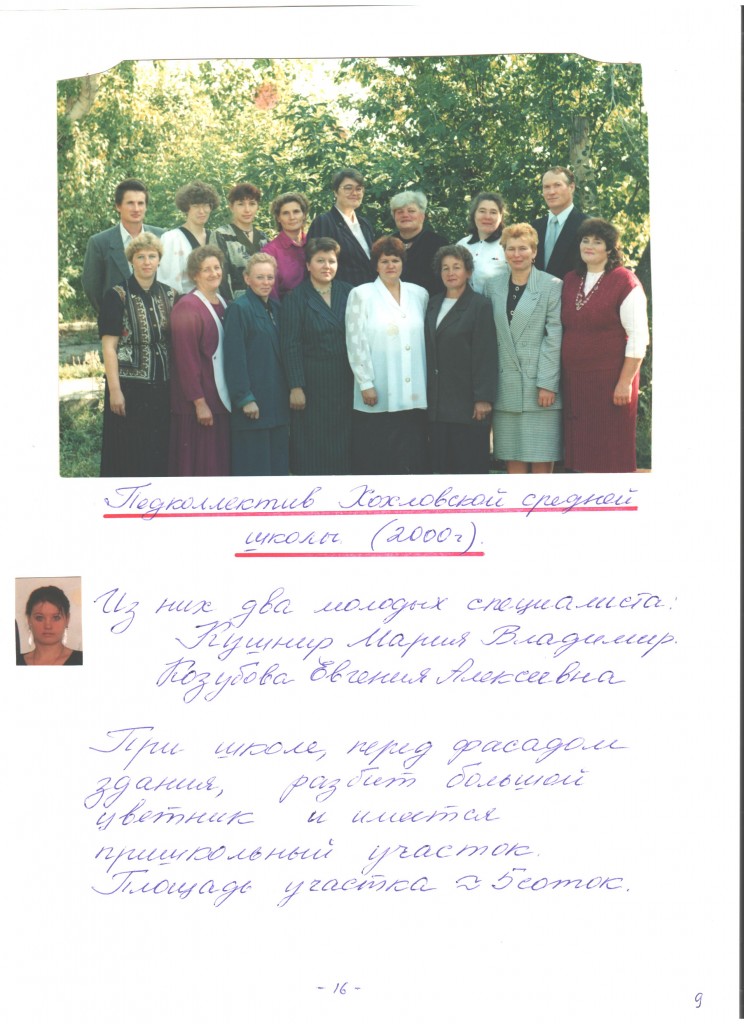 Педколлектив Хохловской средней
школы. (2000г).
Из них два молодых специалиста:
Кушнир Мария Владимир.
Козубова Евгения Алексеевна
При школе, перед фасадом
здания, разбит большой
цветник и имеется
пришкольный участок.
Площадь участка ≈ 5 соток.
- 16 -
9